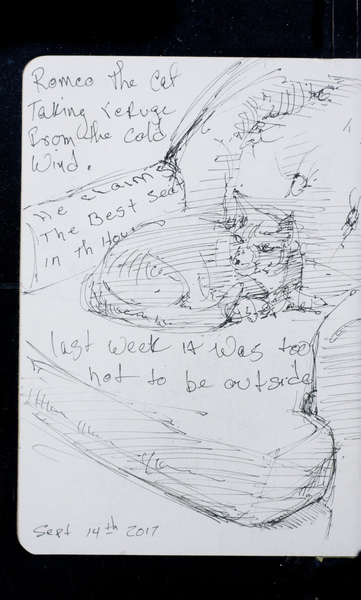 Romeo The Cat
Taking refuge
From the Cold
Wind.
He claims
The Best Sea
in Th Hou
last week it was too
hot to be outside
Sept 14th 2017